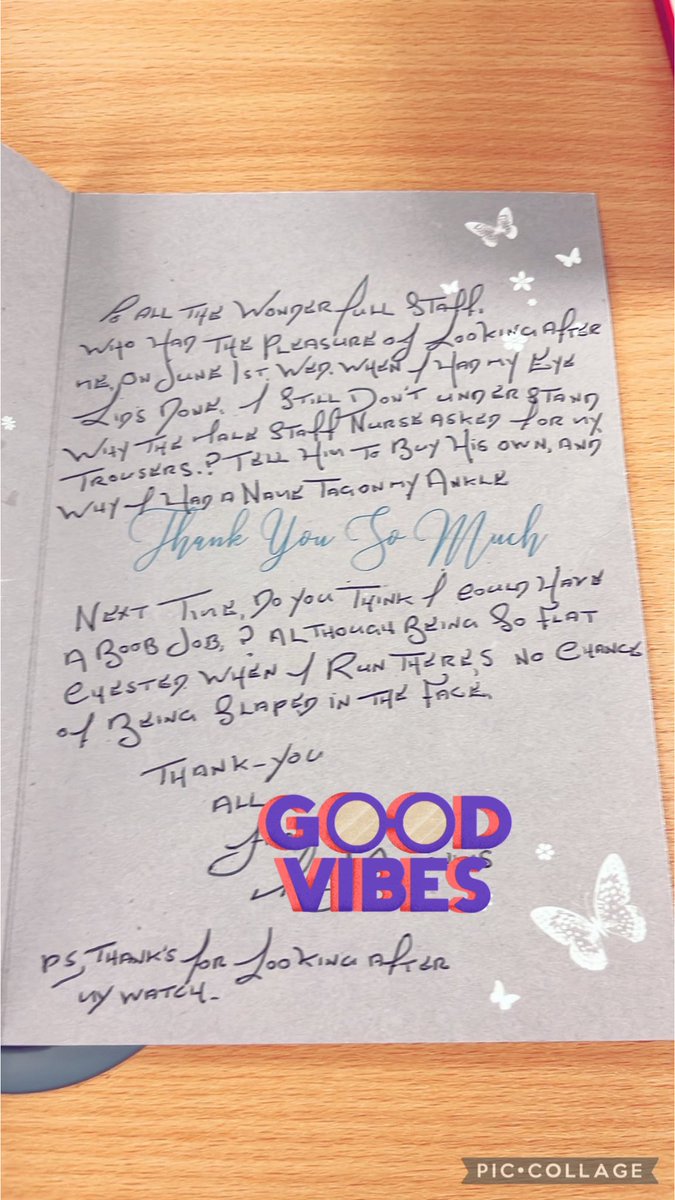 To ALL THE WONDERfULL STAff.
WHO HAD THE PLEASURE of LOOKING AfTER
ME, ON JUNE 1ST. WED. WHEN I HAD MY EYE
LID'S DONE. I STILL DON'T UNDERSTAND
WHY THE MALE STAff NURSE ASKED fOR MY
TROUSERS.? TELL HIM TO BUY HIS OWN, AND
WHY I HAD A NAME TAG ON MY ANKLE
Thank You So Much
NEXT TIME, DO YOU THINK I COULD HAVE
A BOOB JOB,? ALTHOUGH BEING SO FLAT
CHESTED. WHEN I RUN THERE,S NO CHANCE
of BEING SLAPED IN THE FACE.
THANK-YOU
ALL
GOOD
VIBES
PS, THANK'S fOR LOOKING AfTER
MY WATCH-
PIC•COLLAGE